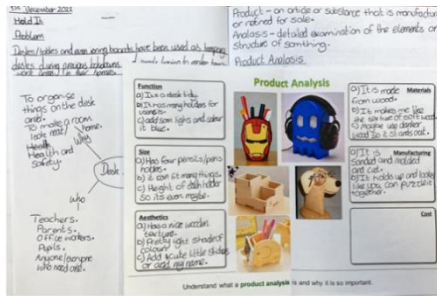 December 2021
Hold It
Problem
Desks/tables and even ironing boards have been used as temporary
desks during previous lockdowns
work desks in their homes.
To organise
things on the desk
area.
To make a room
look neat/ home.
Health and
safety.
Why
Desk
who
Teachers.
Parents.
Office workers.
Pupils.
Anyone/everyone
who need one.
Product - an article or substance that is manufactured
or refined for sale.
Analasis - detailed examination of the elements or
structure of somthing.
Product Analasis.
Product Analysis
Function
a) Its a desk tidy.
b) It has many holders for
c) add som lights and colour
it blue.
Size
a) Has four pencils/pens
holders.
b) it can fit many things.
c) Height of each holder
so its even maybe.
Aesthetics
a) Has a nice wooden
texture.
b) Pretty light shade of
colour
c) Add a cute little stickers
or add my name.
Materials
a) It is made
from wood.
b) It makes me like
the texture of soft wood
c) Maybe use darker
wood so it stands out.
Manufacturing
a) It is
Sanded and molded
and cut.
b) It holds up and looks
like you can puzzle it
together.
Cost
Understand what a product analysis is and why it is so important.